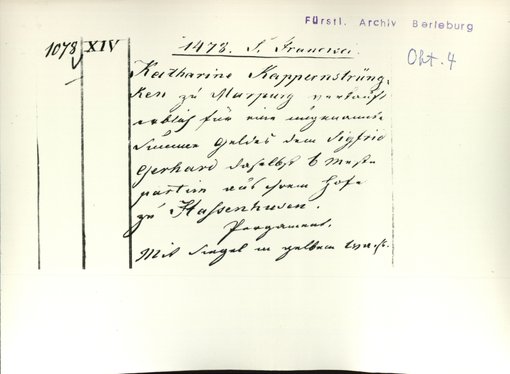 Fürstl. Archiv Berleburg
1078 XIV 1473. S. Francisci. Okt. 4
Katharine Kappenstrün-
ken zu Marpurg verkauft
erblich für eine ungenannte
Summe Geldes dem Sigfrid
Gerhard daselbst 6 Meste
partim aus ihrem Hofe
zu Hassenhusen.
Pergament.
Mit Siegel in gelbem Wachs.